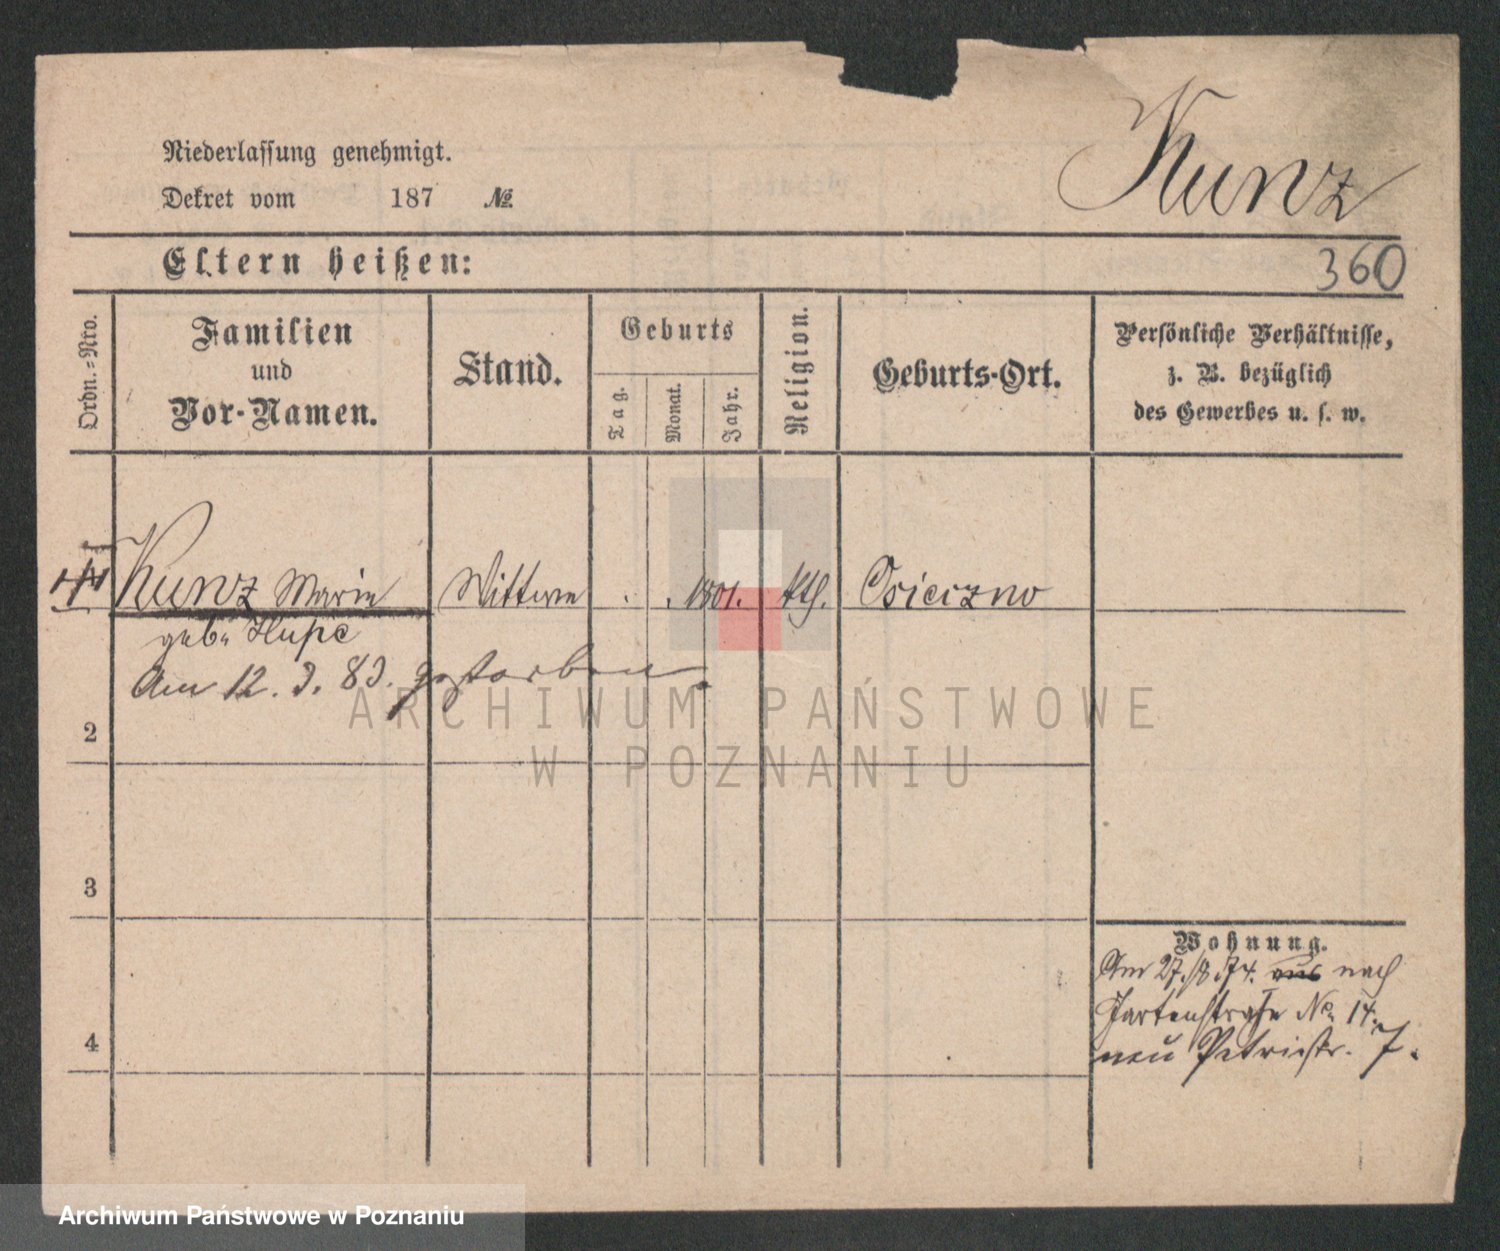 Kunz
Niederlassung genehmigt.
Dekret vom 187 №
Eltern heißen:
360
Ordn.=Nro.
Familien
und
Vor-Namen.
Stand.
Geburts
Tag.
Monat.
Jahr.
Religion.
Geburts-Ort.
Persönliche Verhältnisse,
z. B. bezüglich
des Gewerbes u. s. w.
Kunz Marie Wittwe . . 1801. kth. Osieczno
geb. Hupe
Am 12. 3. 83. gestorben.
2
3
4
Wohnung.
Am 27./8.74. aus nach
Gartenstraße No 14.
neu Petristr. 7.
ARCHIWUM PAŃSTWOWE
W POZNANIU
Archiwum Państwowe w Poznaniu